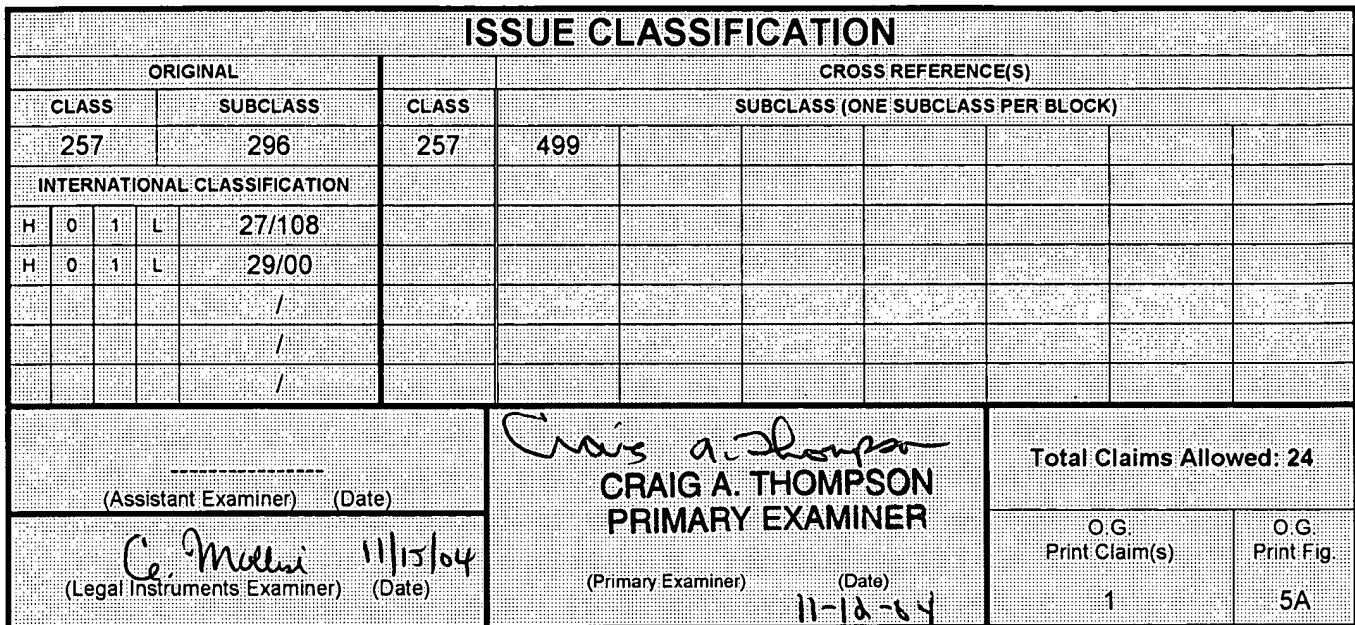 ISSUE CLASSIFICATION
ORIGINAL CROSS REFERENCE(S)
CLASS SUBCLASS CLASS SUBCLASS (ONE SUBCLASS PER BLOCK)
257 296 257 499
INTERNATIONAL CLASSIFICATION
H 0 1 L 27/108
H 0 1 L 29/00
/
/
/
(Assistant Examiner) (Date)
11/15/04
(Legal Instruments Examiner) (Date)
Craig A. Thompson
CRAIG A. THOMPSON
PRIMARY EXAMINER
(Primary Examiner) (Date)
Total Claims Allowed: 24
O.G.
Print Claim(s)
1
O.G.
Print Fig.
5A